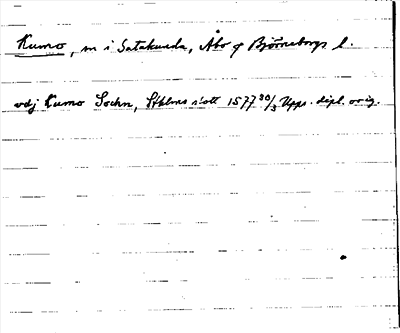 Kumo, sn i Satakunda, Åbo o Björneborgs l.
vdj Kumo Sochn, Stklms slott 1577 30/3 Upps. dipl. orig.